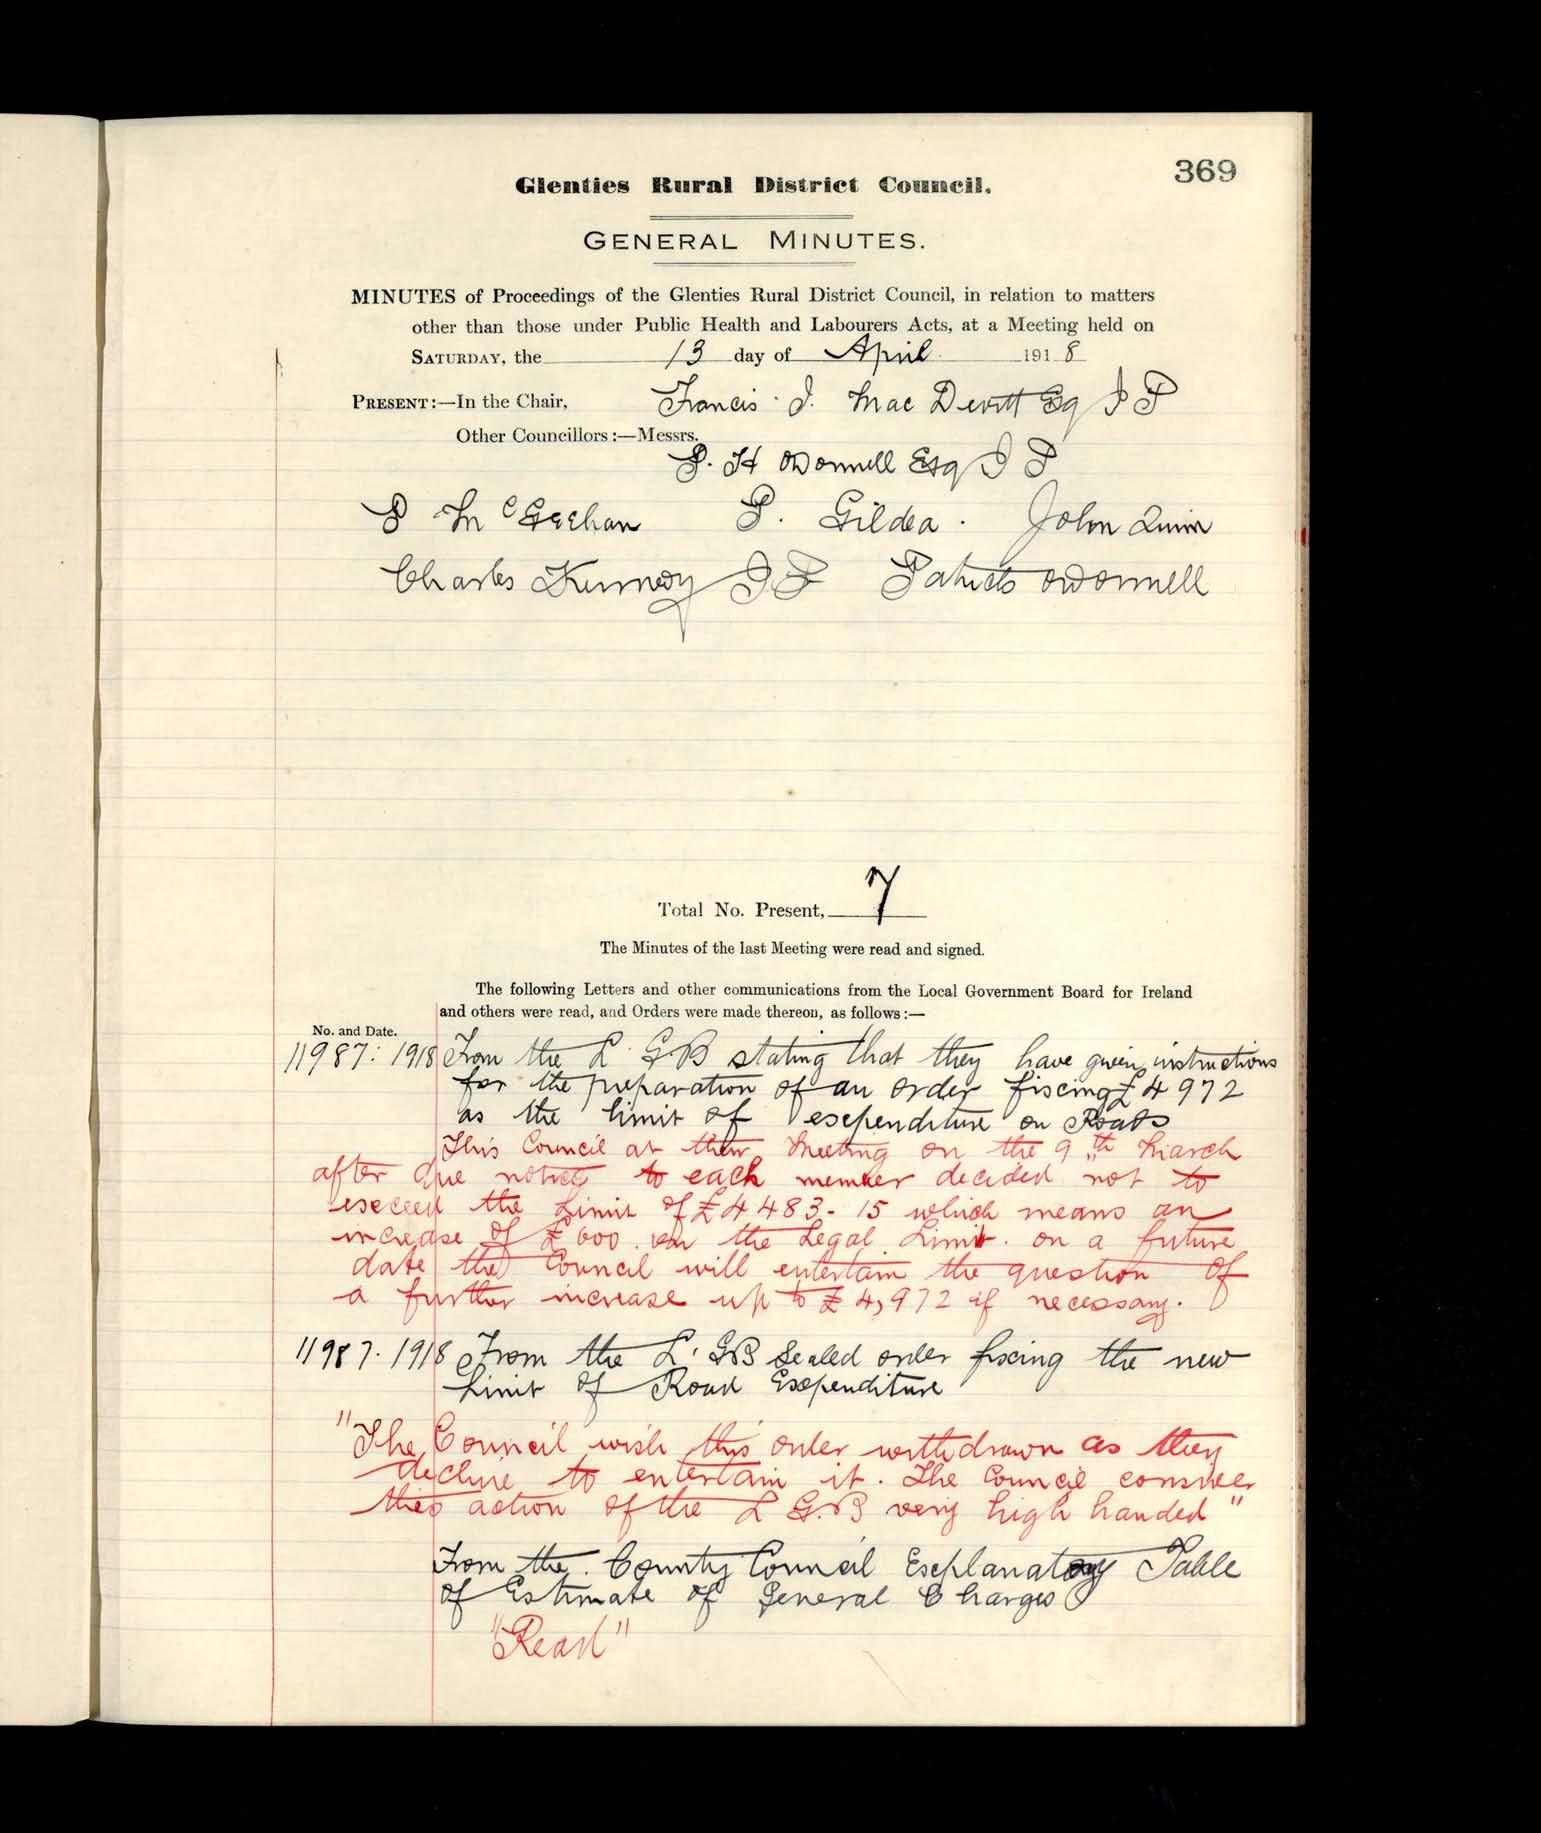 369
Glenties Rural District Council.
GENERAL MINUTES.
MINUTES of Proceedings of the Glenties Rural District Council, in relation to matters
other than those under Public Health and Labourers Acts, at a Meeting held on
SATURDAY, the 13 day of April 1918
PRESENT:—In the Chair, Francis J. Mac Devitt Esq J P
Other Councillors:—Messrs.
P. H O'Donnell Esq J P
P McGeehan P. Gildea. John Quinn
Charles Kennedy J P Patrick O'Donnell
Total No. Present, 7
The Minutes of the last Meeting were read and signed.
The following Letters and other communications from the Local Government Board for Ireland
and others were read, and Orders were made thereon, as follows:—
No. and Date.
11987: 1918 From the L. G.B stating that they have given instructions
for the preparation of an order fixing £4972
as the limit of expenditure on Roads
This Council at their Meeting on the 9th March
after due notice to each member decided not to
exceed the Limit of £4483-15 which means an
increase of £600 on the Legal Limit. on a future
date the Council will entertain the question of
a further increase up to £4,972 if necessary.
11987. 1918 From the L. GB Sealed order fixing the new
Limit of Road Expenditure
"The Council wish this order withdrawn as they
decline to entertain it. The Council consider
this action of the L G.B very high handed"
From the County Council Explanatory Table
of Estimate of General Charges
"Read"